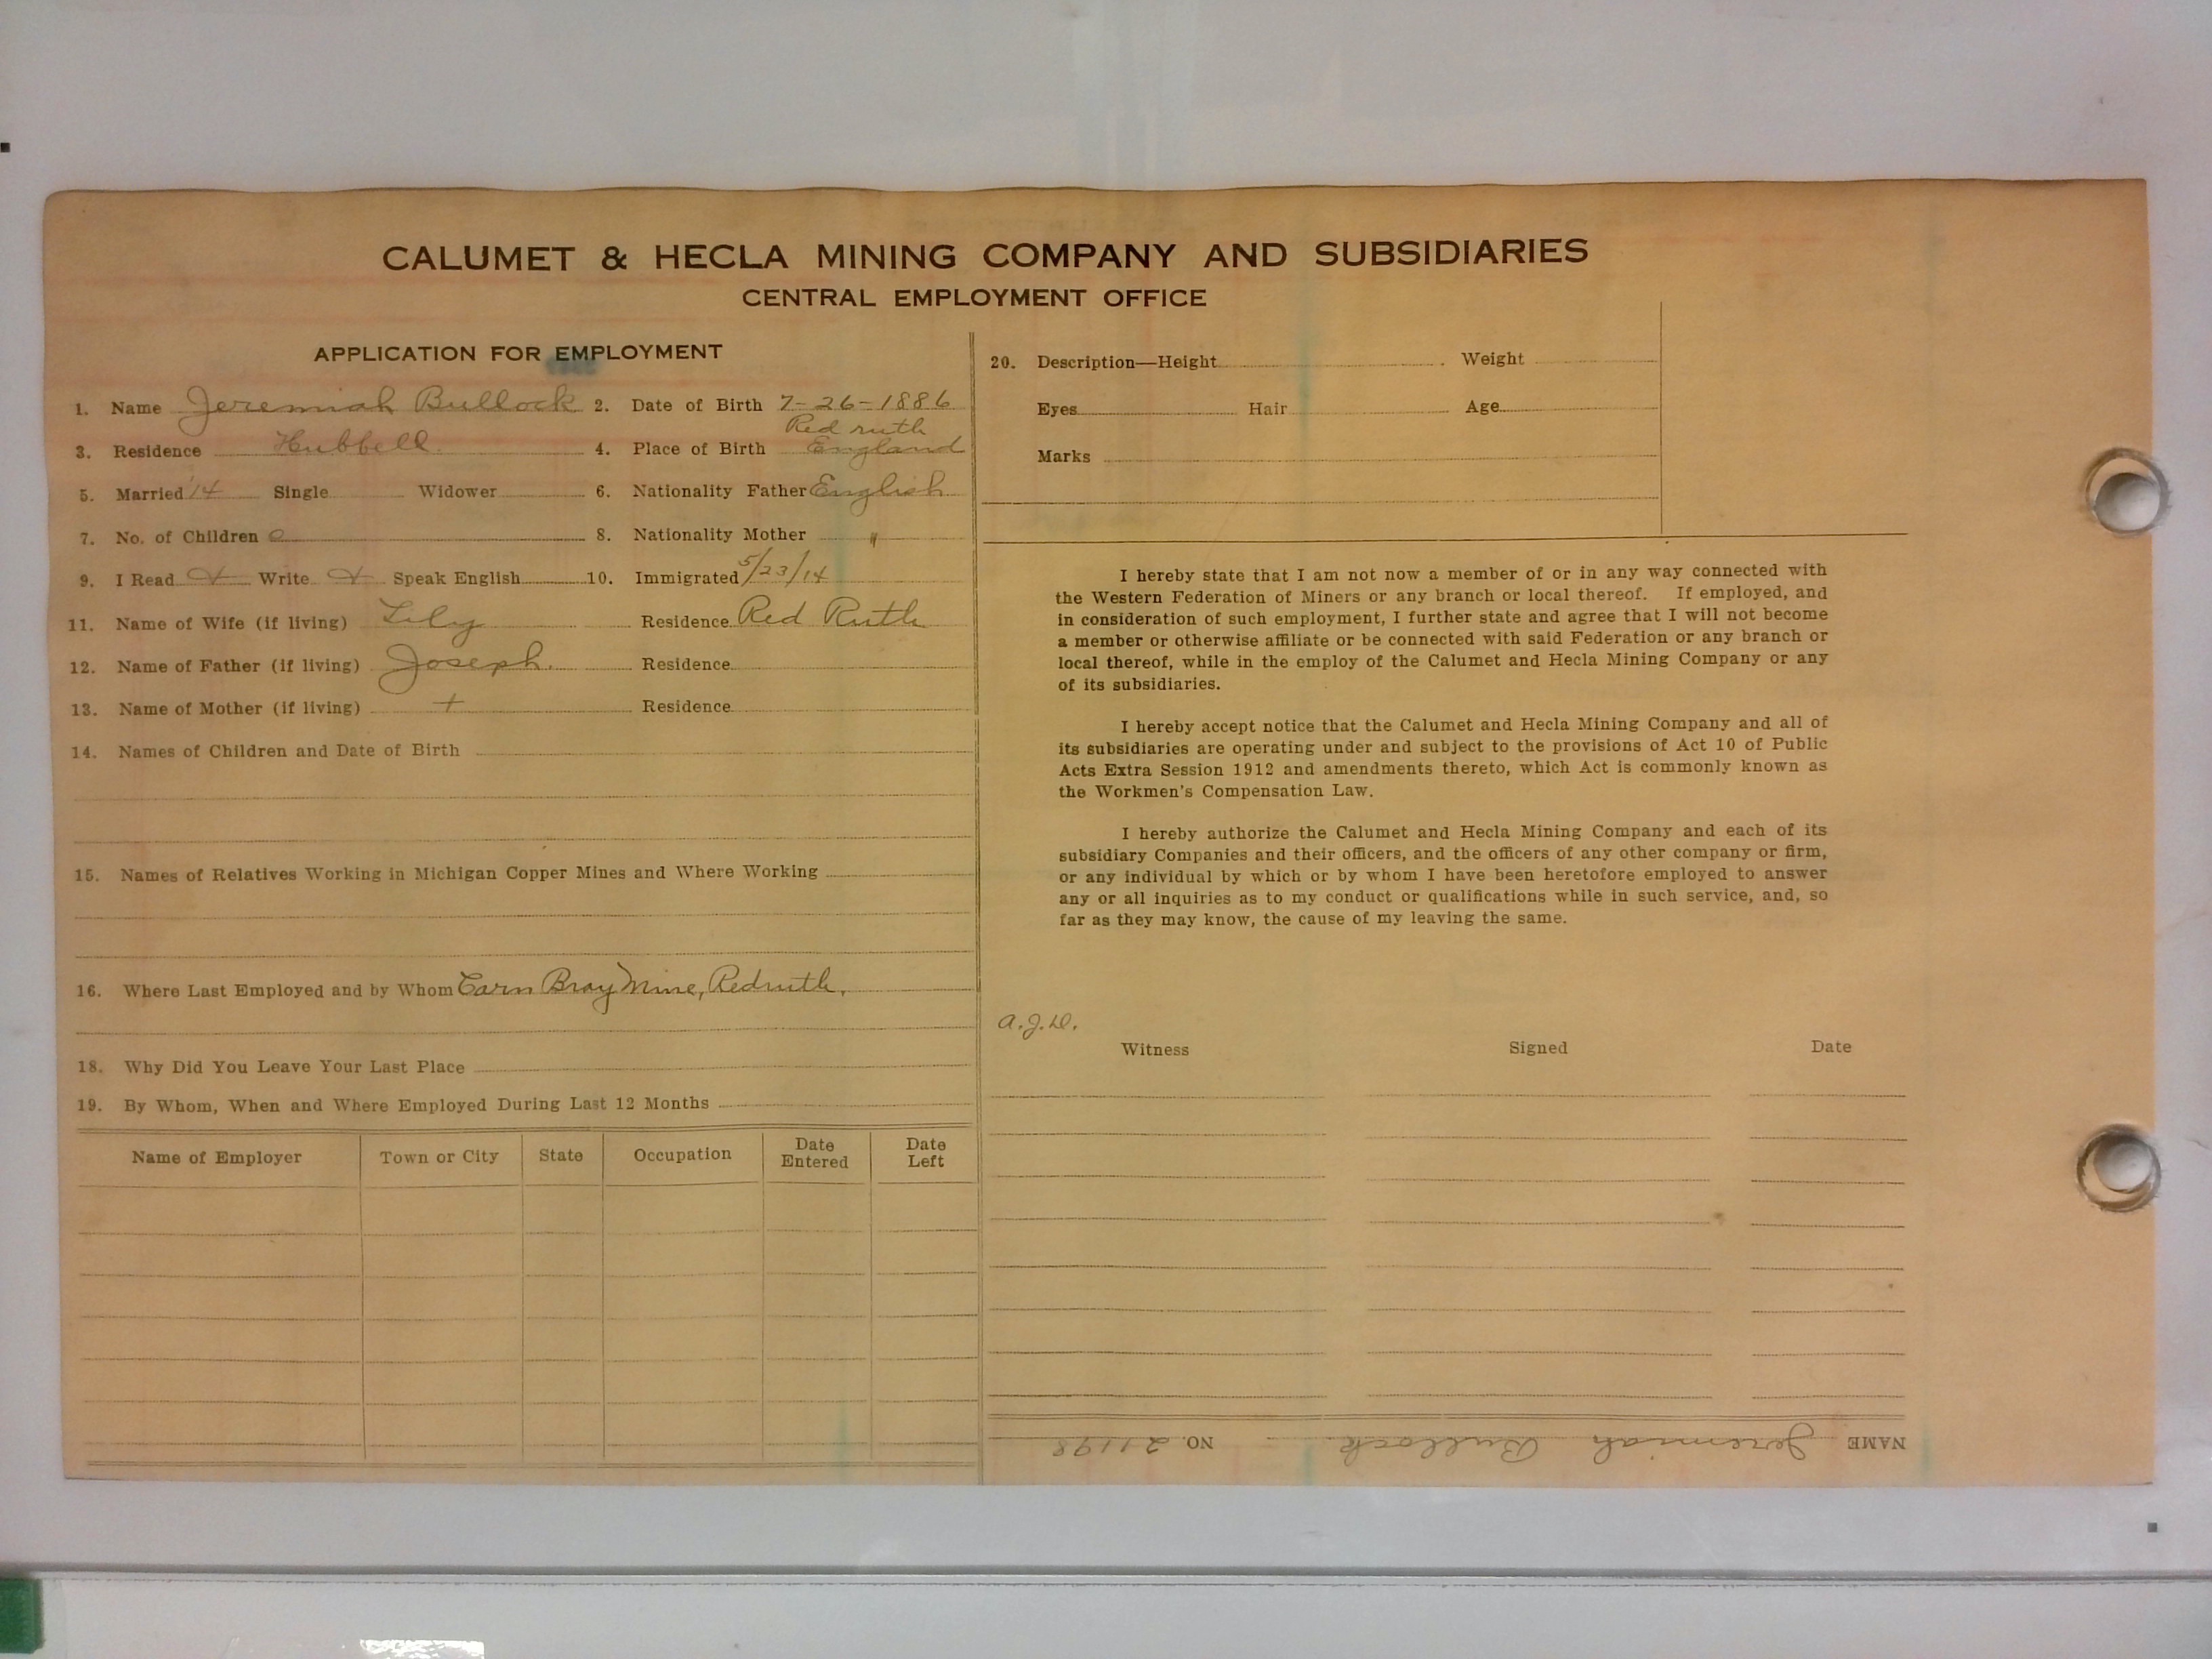 CALUMET & HECLA MINING COMPANY AND SUBSIDIARIES
CENTRAL EMPLOYMENT OFFICE
APPLICATION FOR EMPLOYMENT
1. Name Jeremiah Bullock 2. Date of Birth 7-26-1886
Red ruth
3. Residence Hubbell. 4. Place of Birth England
5. Married '14 Single Widower 6. Nationality Father English
7. No. of Children 0 8. Nationality Mother "
9. I Read Write Speak English 10. Immigrated 5/23/14
11. Name of Wife (if living) Lily Residence Red Ruth
12. Name of Father (if living) Joseph. Residence
13. Name of Mother (if living) + Residence
14. Names of Children and Date of Birth
15. Names of Relatives Working in Michigan Copper Mines and Where Working
16. Where Last Employed and by Whom Carn Bray Mine, Redruth.
18. Why Did You Leave Your Last Place
19. By Whom, When and Where Employed During Last 12 Months
Name of Employer Town or City State Occupation Date Entered Date Left
20. Description—Height Weight
Eyes Hair Age
Marks
I hereby state that I am not now a member of or in any way connected with
the Western Federation of Miners or any branch or local thereof. If employed, and
in consideration of such employment, I further state and agree that I will not become
a member or otherwise affiliate or be connected with said Federation or any branch or
local thereof, while in the employ of the Calumet and Hecla Mining Company or any
of its subsidiaries.
I hereby accept notice that the Calumet and Hecla Mining Company and all of
its subsidiaries are operating under and subject to the provisions of Act 10 of Public
Acts Extra Session 1912 and amendments thereto, which Act is commonly known as
the Workmen's Compensation Law.
I hereby authorize the Calumet and Hecla Mining Company and each of its
subsidiary Companies and their officers, and the officers of any other company or firm,
or any individual by which or by whom I have been heretofore employed to answer
any or all inquiries as to my conduct or qualifications while in such service, and, so
far as they may know, the cause of my leaving the same.
Witness Signed Date
NAME Jeremiah Bullock. NO. 21198